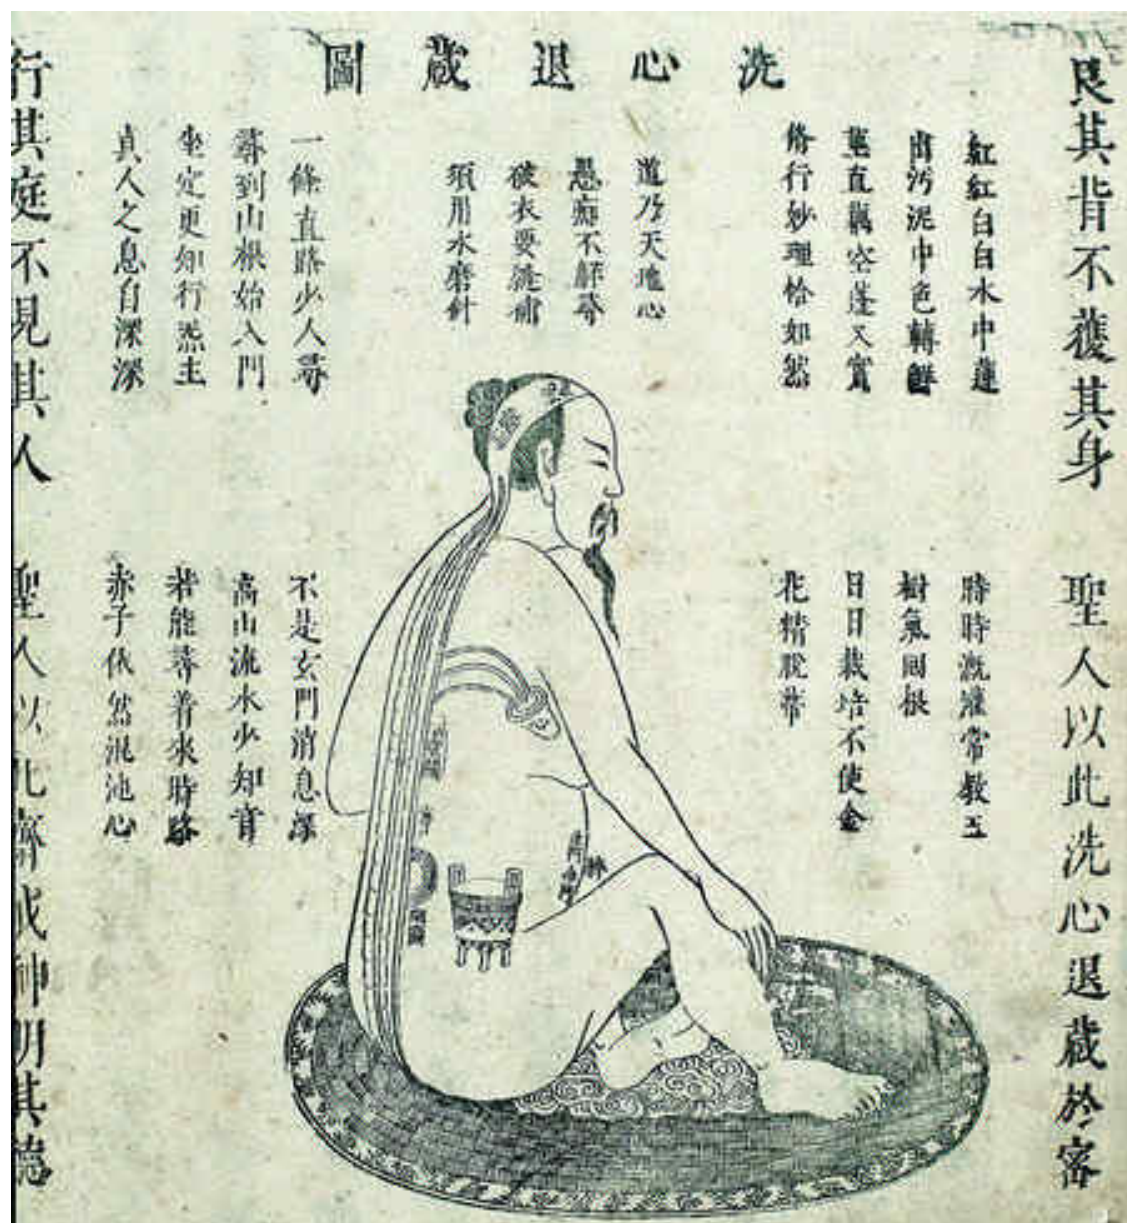 洗心退藏圖
艮其背不獲其身
聖人以此洗心退藏於密
紅紅白白水中蓮
出污泥中色轉鮮
莖直藕空蓬又實
脩行妙理恰如然
道乃天地心
愚癡不解尋
破衣要縫補
須用水磨針
一條直路少人尋
尋到山根始入門
坐定更知行炁主
真人之息自深深
時時溉灌常教玉
樹氣回根
日日栽培不使金
花精脫蒂
不是玄門消息深
高山流水少知音
若能尋着來時路
赤子依然混沌心
行其庭不見其人
聖人以此齊戒神明其德